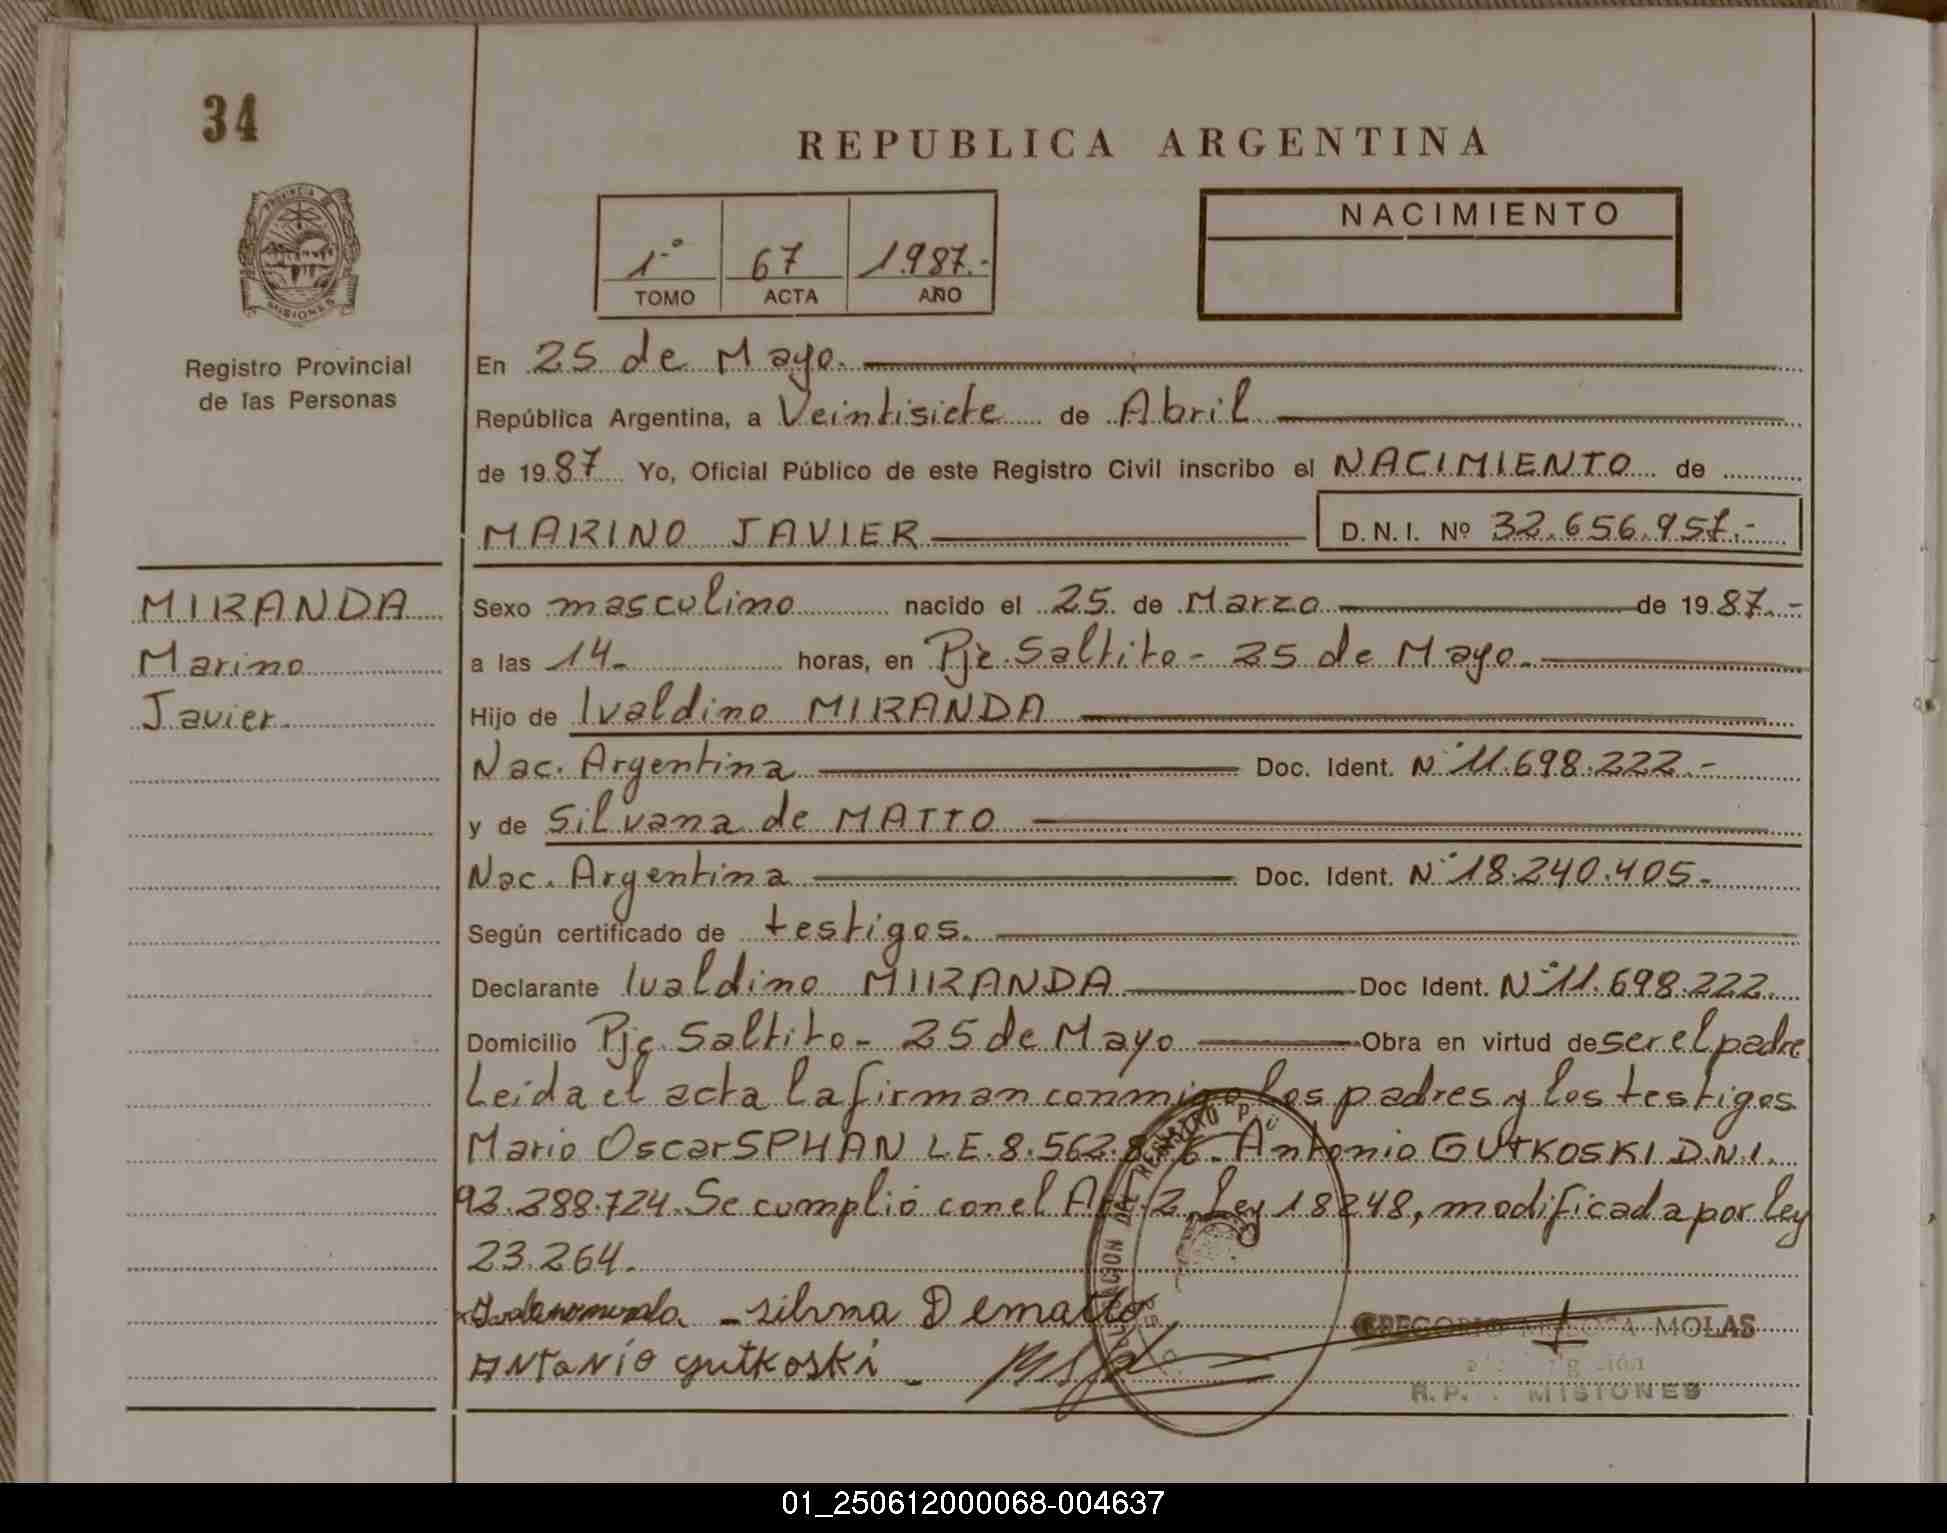 34
REPUBLICA ARGENTINA
PROVINCIA
MISIONES
1º 67 1.987.-
TOMO ACTA AÑO
NACIMIENTO
Registro Provincial
de las Personas
En 25 de Mayo.
República Argentina, a Veintisiete de Abril
de 19 87 Yo, Oficial Público de este Registro Civil inscribo el NACIMIENTO de
MARINO JAVIER D.N.I. Nº 32.656.957.-
MIRANDA
Marino
Javier.
Sexo masculino nacido el 25 de Marzo de 19 87.-
a las 14- horas, en Pje. Saltito - 25 de Mayo.
Hijo de Ivaldino MIRANDA
Nac. Argentina Doc. Ident. Nº 11.698.222.-
y de Silvana de MATTO
Nac. Argentina Doc. Ident. Nº 18.240.405-
Según certificado de testigos.
Declarante Ivaldino MIRANDA Doc Ident. Nº 11.698.222.
Domicilio Pje. Saltito - 25 de Mayo Obra en virtud de ser el padre
Leida el acta la firman conmigo los padres y los testigos
Mario Oscar SPHAN L.E. 8.562. Antonio GUTKOSKI D.N.I.
92.388.724. Se cumplió con el Art. 2, Ley 18248, modificada por ley
23.264.
Dematto
ANTONIO gutkoski
MOLAS
R.P. MISIONES
01_250612000068-004637